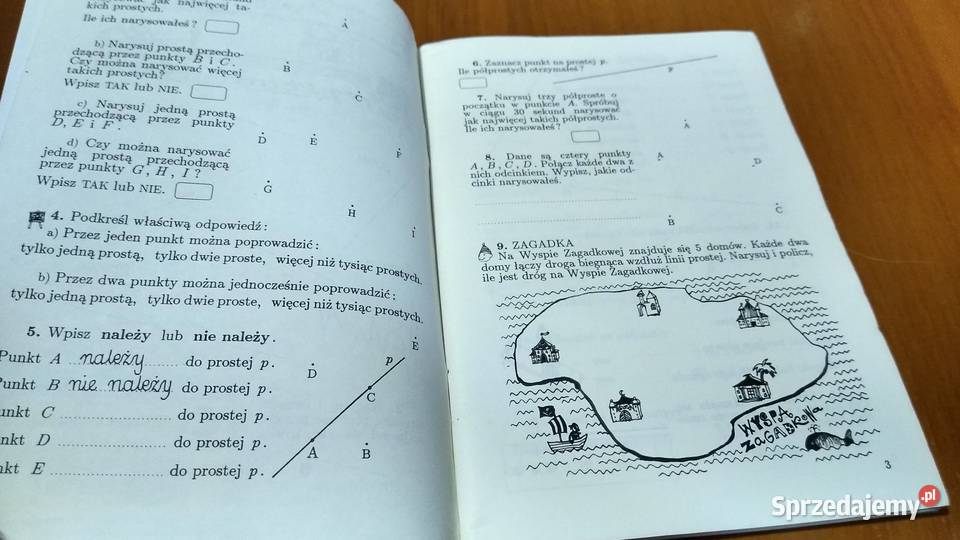 jak najwięcej ta-
kich prostych.
Ile ich narysowałeś?
A
b) Narysuj prostą przecho-
dzącą przez punkty B i C.
Czy można narysować więcej
takich prostych?
Wpisz TAK lub NIE.
B
C
c) Narysuj jedną prostą
przechodzącą przez punkty
D, E i F.
D
E
F
d) Czy można narysować
jedną prostą przechodzącą
przez punkty G, H, I?
Wpisz TAK lub NIE.
G
H
I
4. Podkreśl właściwą odpowiedź:
a) Przez jeden punkt można poprowadzić:
tylko jedną prostą, tylko dwie proste, więcej niż tysiąc prostych.
b) Przez dwa punkty można jednocześnie poprowadzić:
tylko jedną prostą, tylko dwie proste, więcej niż tysiąc prostych.
5. Wpisz należy lub nie należy.
Punkt A należy do prostej p.
Punkt B nie należy do prostej p.
unkt C do prostej p.
nkt D do prostej p.
nkt E do prostej p.
E
p
D
C
A
B
6. Zaznacz punkt na prostej p.
Ile półprostych otrzymałeś?
p
7. Narysuj trzy półproste o
początku w punkcie A. Spróbuj
w ciągu 30 sekund narysować
jak najwięcej takich półprostych.
Ile ich narysowałeś?
A
8. Dane są cztery punkty
A, B, C, D. Połącz każde dwa z
nich odcinkiem. Wypisz, jakie od-
cinki narysowałeś.
A
D
B
C
9. ZAGADKA
Na Wyspie Zagadkowej znajduje się 5 domów. Każde dwa
domy łączy droga biegnąca wzdłuż linii prostej. Narysuj i policz,
ile jest dróg na Wyspie Zagadkowej.
WYSPA
ZAGADKOWA
3
Sprzedajemy.pl